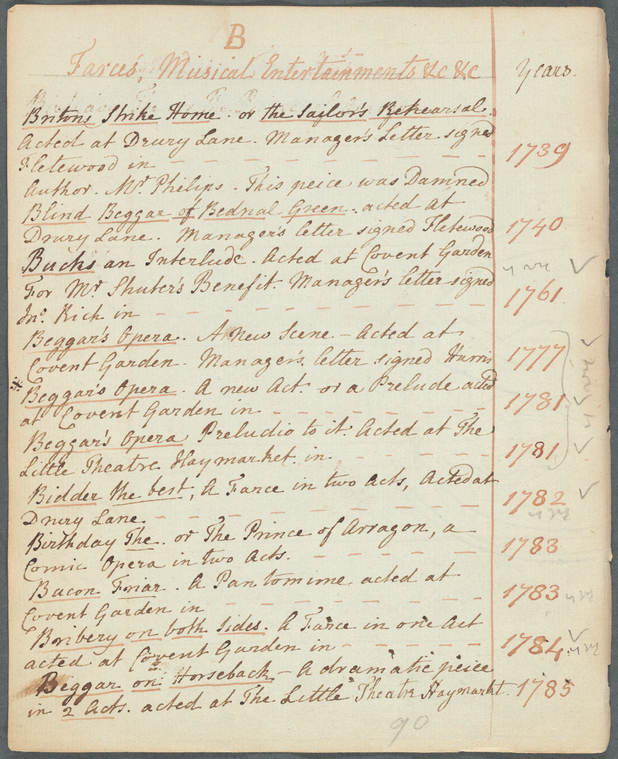 B
Farces, Musical Entertainments &c &c
Years.
Britons Strike Home. or the Sailor's Rehearsal.
Acted at Drury Lane. Manager's Letter signed
Fletewood in 1739
Author. Mr Philips. This peice was Damned
Blind Beggar of Bednal Green. acted at
Drury Lane. Manager's letter signed Fletewood 1740
Bucks an Interlude. Acted at Covent Garden
For Mr Shuter's Benefit. Manager's letter signed
Jno. Rich in 1761.
Beggar's Opera. A New Scene - Acted at
Covent Garden. Manager's letter signed Harris 1777
Beggar's Opera. A new Act. or a Prelude acted
at Covent Garden in 1781
Beggar's Opera Preludio to it. Acted at The
Little Theatre Haymarket. in 1781
Bidder the best; A Farce in two Acts, Acted at
Drury Lane 1782
Birthday The. or The Prince of Arragon, a
Comic Opera in two Acts. 1783
Bacon Friar. A Pantomime. acted at
Covent Garden in 1783
Bribery on both Sides. A Farce in one Act
acted at Covent Garden in 1784
Beggar on Horseback - A dramatic peice
in 2 Acts. acted at The Little Theatre Haymarkt. 1785
90